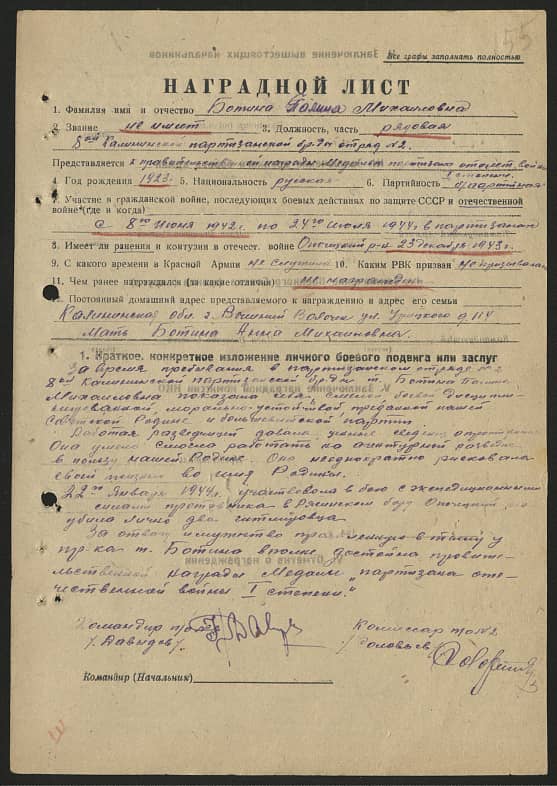 55
Все графы заполнять полностью
НАГРАДНОЙ ЛИСТ
1. Фамилия имя и отчество Ботина Галина Михайловна
2. Звание не имеет 3. Должность, часть рядовая
8ой Калининской партизанской бр-ды отряд №2.
Представляется к правительственной награде Медаль партизана отечест. войны
I степени.
4. Год рождения 1923. 5. Национальность русская 6. Партийность
7. Участие в гражданской войне, последующих боевых действиях по защите СССР и отечественной
войне (где и когда)
с 8го Июня 1942г. по 24го Июля 1944г. в партизанах
8. Имеет ли ранения и контузии в отечест. войне Опочецкий р-н 23 декабря 1943г.
9. С какого времени в Красной Армии не служила 10. Каким РВК призван не призывалась
11. Чем ранее награждался (за какие отличия) не награжден
12. Постоянный домашний адрес представляемого к награждению и адрес его семьи
Калининская обл. г. Вышний Волочек ул. Урицкого д.
Мать Ботина Анна Михайловна.
1. Краткое, конкретное изложение личного боевого подвига или заслуг
За время пребывания в партизанском отряде №2
8ой Калининской партизанской бр-ды т. Ботина Галина
Михайловна показала себя смелой боевой дисципли-
нированной, морально-устойчивой преданной нашей
Советской Родине и большевистской партии.
Работая разведчицей давала ценные сведения о противнике.
Она умело смогла работать по агентурной разведке
в пользу нашей Родине. Она неоднократно рисковала
своей жизнью во имя Родины.
22го Января 1944г. участвовала в бою с экспедиционными
силами противника в бору
убила лично два гитлеровца.
За отвагу и мужество проявленную в тылу у
пр-ка т. Ботина вполне достойна правите-
льственной награды Медали "партизана оте-
чественной войны I степени."
Командир
/Давыдов/
Комиссар №2
/Соловьев/
Командир (Начальник)